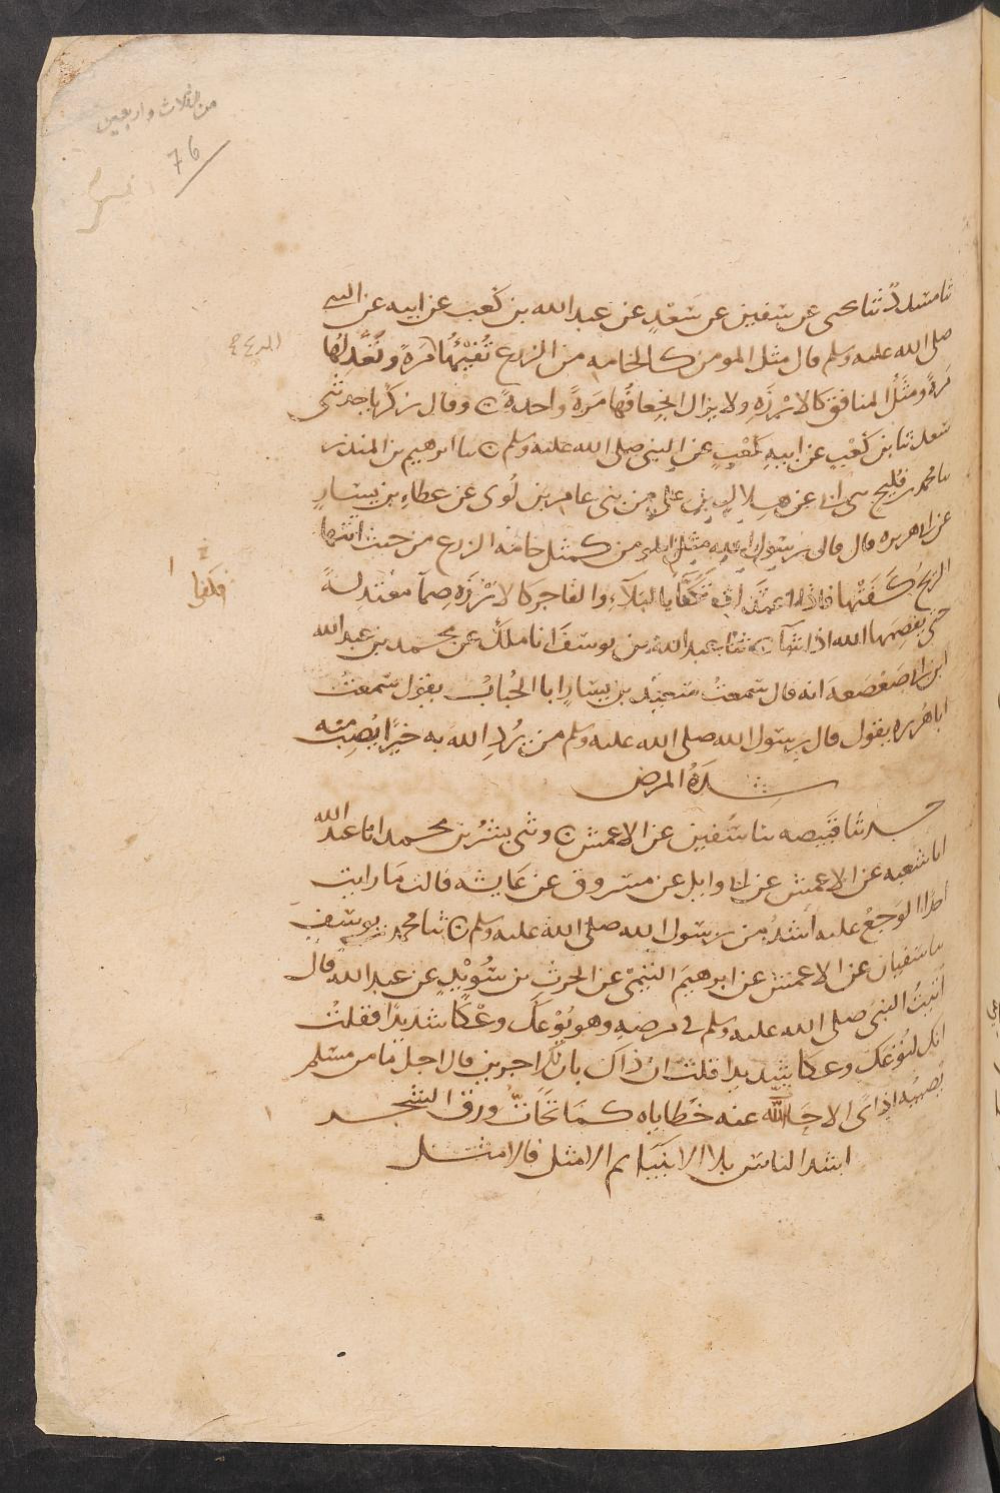 من الثلاث واربعين
76
ثنا مسدد ثنا يحيى عن سفين عن سعد عن عبد الله بن كعب عن ابيه عن النبى
صلى الله عليه وسلم قال مثل المومن كالخامه من الزرع تفيئها مرة وتعدلها
مرة ومثل المنافق كالارزه ولا يزال انجعافها مرة واحدة وقال زكريا حدثنى
سعد ثنا بن كعب عن ابيه كعب عن النبى صلى الله عليه وسلم ثنا ابرهيم بن المنذر
ثنا محمد بن فليح ثنى ابى عن هلال بن على من بنى عامر بن لوى عن عطاء بن يسار
عن ابى هريره قال قال رسول الله مثل المومن كمثل خامه الزرع من حيث اتتها
الريح كفتها فاذا اعتدلت تكفا بالبلاء والفاجر كالارزه صما معتدلة
فتكفوا
حتى يقصمها الله اذا شا ثنا عبد الله بن يوسف انا ملك عن محمد بن عبد الله
ابن ابى صعصعه انه قال سمعت سعيد بن يسار ابا الحباب يقول سمعت
ابا هريره يقول قال رسول الله صلى الله عليه وسلم من يرد الله به خيرا يصب منه
شدة المرض
حدثنا قبيصه ثنا سفين عن الاعمش وثنى بشر بن محمد انا عبد الله
انا شعبه عن الاعمش عن ابى وايل عن مسروق عن عايشه قالت ما رايت
احدا الوجع عليه اشد من رسول الله صلى الله عليه وسلم ثنا محمد بن يوسف
ثنا سفيان عن الاعمش عن ابرهيم التيمى عن الحرث بن سويد عن عبد الله قال
اتيت النبى صلى الله عليه وسلم فى مرضه وهو يوعك وعكا شديدا فقلت
انك لتوعك وعكا شديدا قلت ان ذاك بان لك اجرين قال اجل ما من مسلم
يصيبه اذى الا حات الله عنه خطاياه كما تحات ورق الشجر
اشد الناس بلا الانبيا ثم الامثل فالامثل